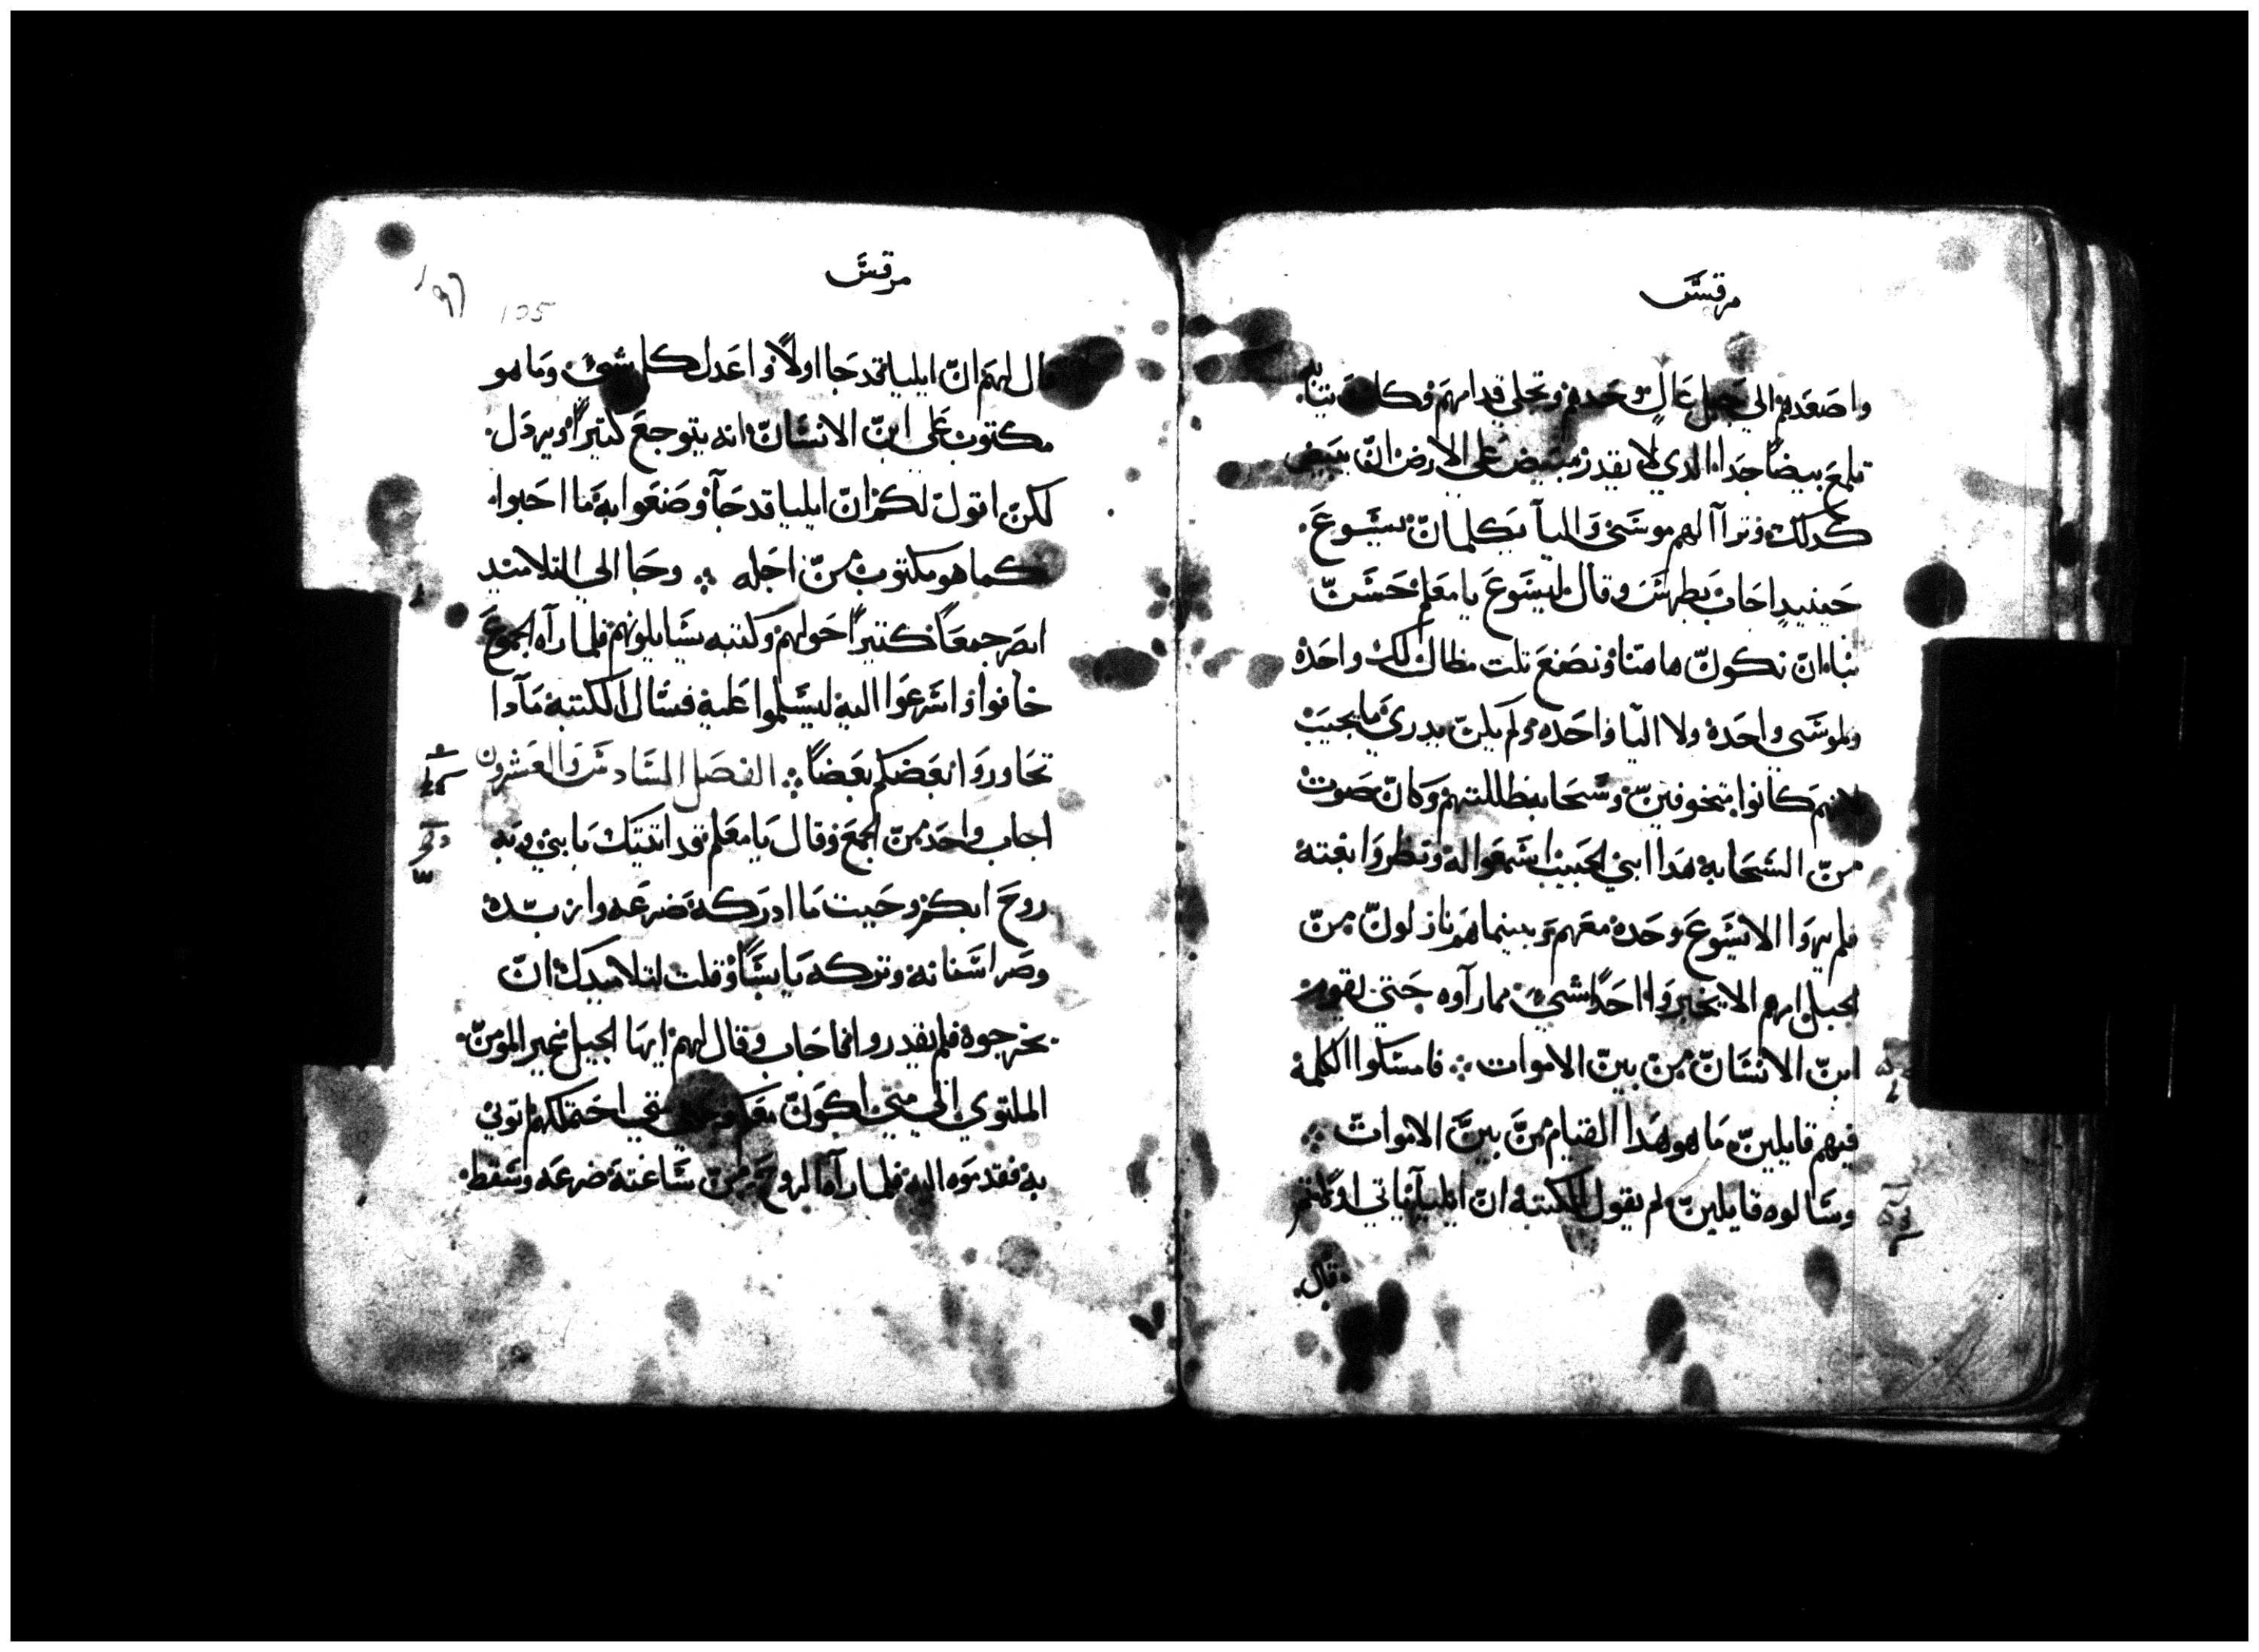 مرقس
واصعدهم الي جبل عال وحدهم وتجلي قدامهم وكانت ثيابه
تلمع بيضا جدا الدي لا يقدر مبيض علي الارض ان يبيض
كدلك وتراآ لهم موسي واليا يكلمان يسوع
حينيد اجاب بطرس وقال ليسوع يا معلم حسن
بنا ان نكون هاهنا ونصنع تلت مظال لك واحده
ولموسي واحده ولاليا واحده ولم يكن يدري ما يجيب
لانهم كانوا متخوفين وسحابه ظللتهم وكان صوت
من السحابه هدا ابني الحبيب اسمعوا له ونظروا بغته
فلم يروا الا يسوع وحده معهم وبينما هم نازلون من
الجبل امرهم الا يخبروا احدا شي مما رآوه حتي يقوم
ابن الانسان من بين الاموات فامسكوا الكلمه
فيهم قايلين ما هو هدا القيام من بين الاموات
وسالوه قايلين لم يقول الكتبه ان ايليا ياتي اولا
قال
مرقس
105
قال لهم ان ايليا قد جا اولا واعدل كل شي وما هو
مكتوب علي ابن الانسان انه يتوجع كتيرا ويردل
لكن اقول لكم ان ايليا قد جآ وصنعوا به ما احبوا
كما هو مكتوب من اجله وجا الي التلاميد
ابصر جمعا كتيرا حولهم وكتبه يسايلونهم فلما رآه الجموع
خافوا واسرعوا اليه ليسلموا عليه فسال الكتبه مآدا
تحاوروا بعضكم بعضا الفصل السادس والعشرون
اجاب واحد من الجمع وقال يا معلم قد اتيتك بابني وبه
روح ابكم وحيت ما ادركه ضرعه وازبده
وصر اسنانه وتركه يابسا وقلت لتلاميدك ان
يخرجوه فلم يقدروا فاجاب وقال لهم ايها الجيل الغير المومن
الملتوي الي متي اكون معكم وحتي متي احتملكم اتوني
به فقدموه اليه فلما رآه الروح من ساعته ضرعه وسقط